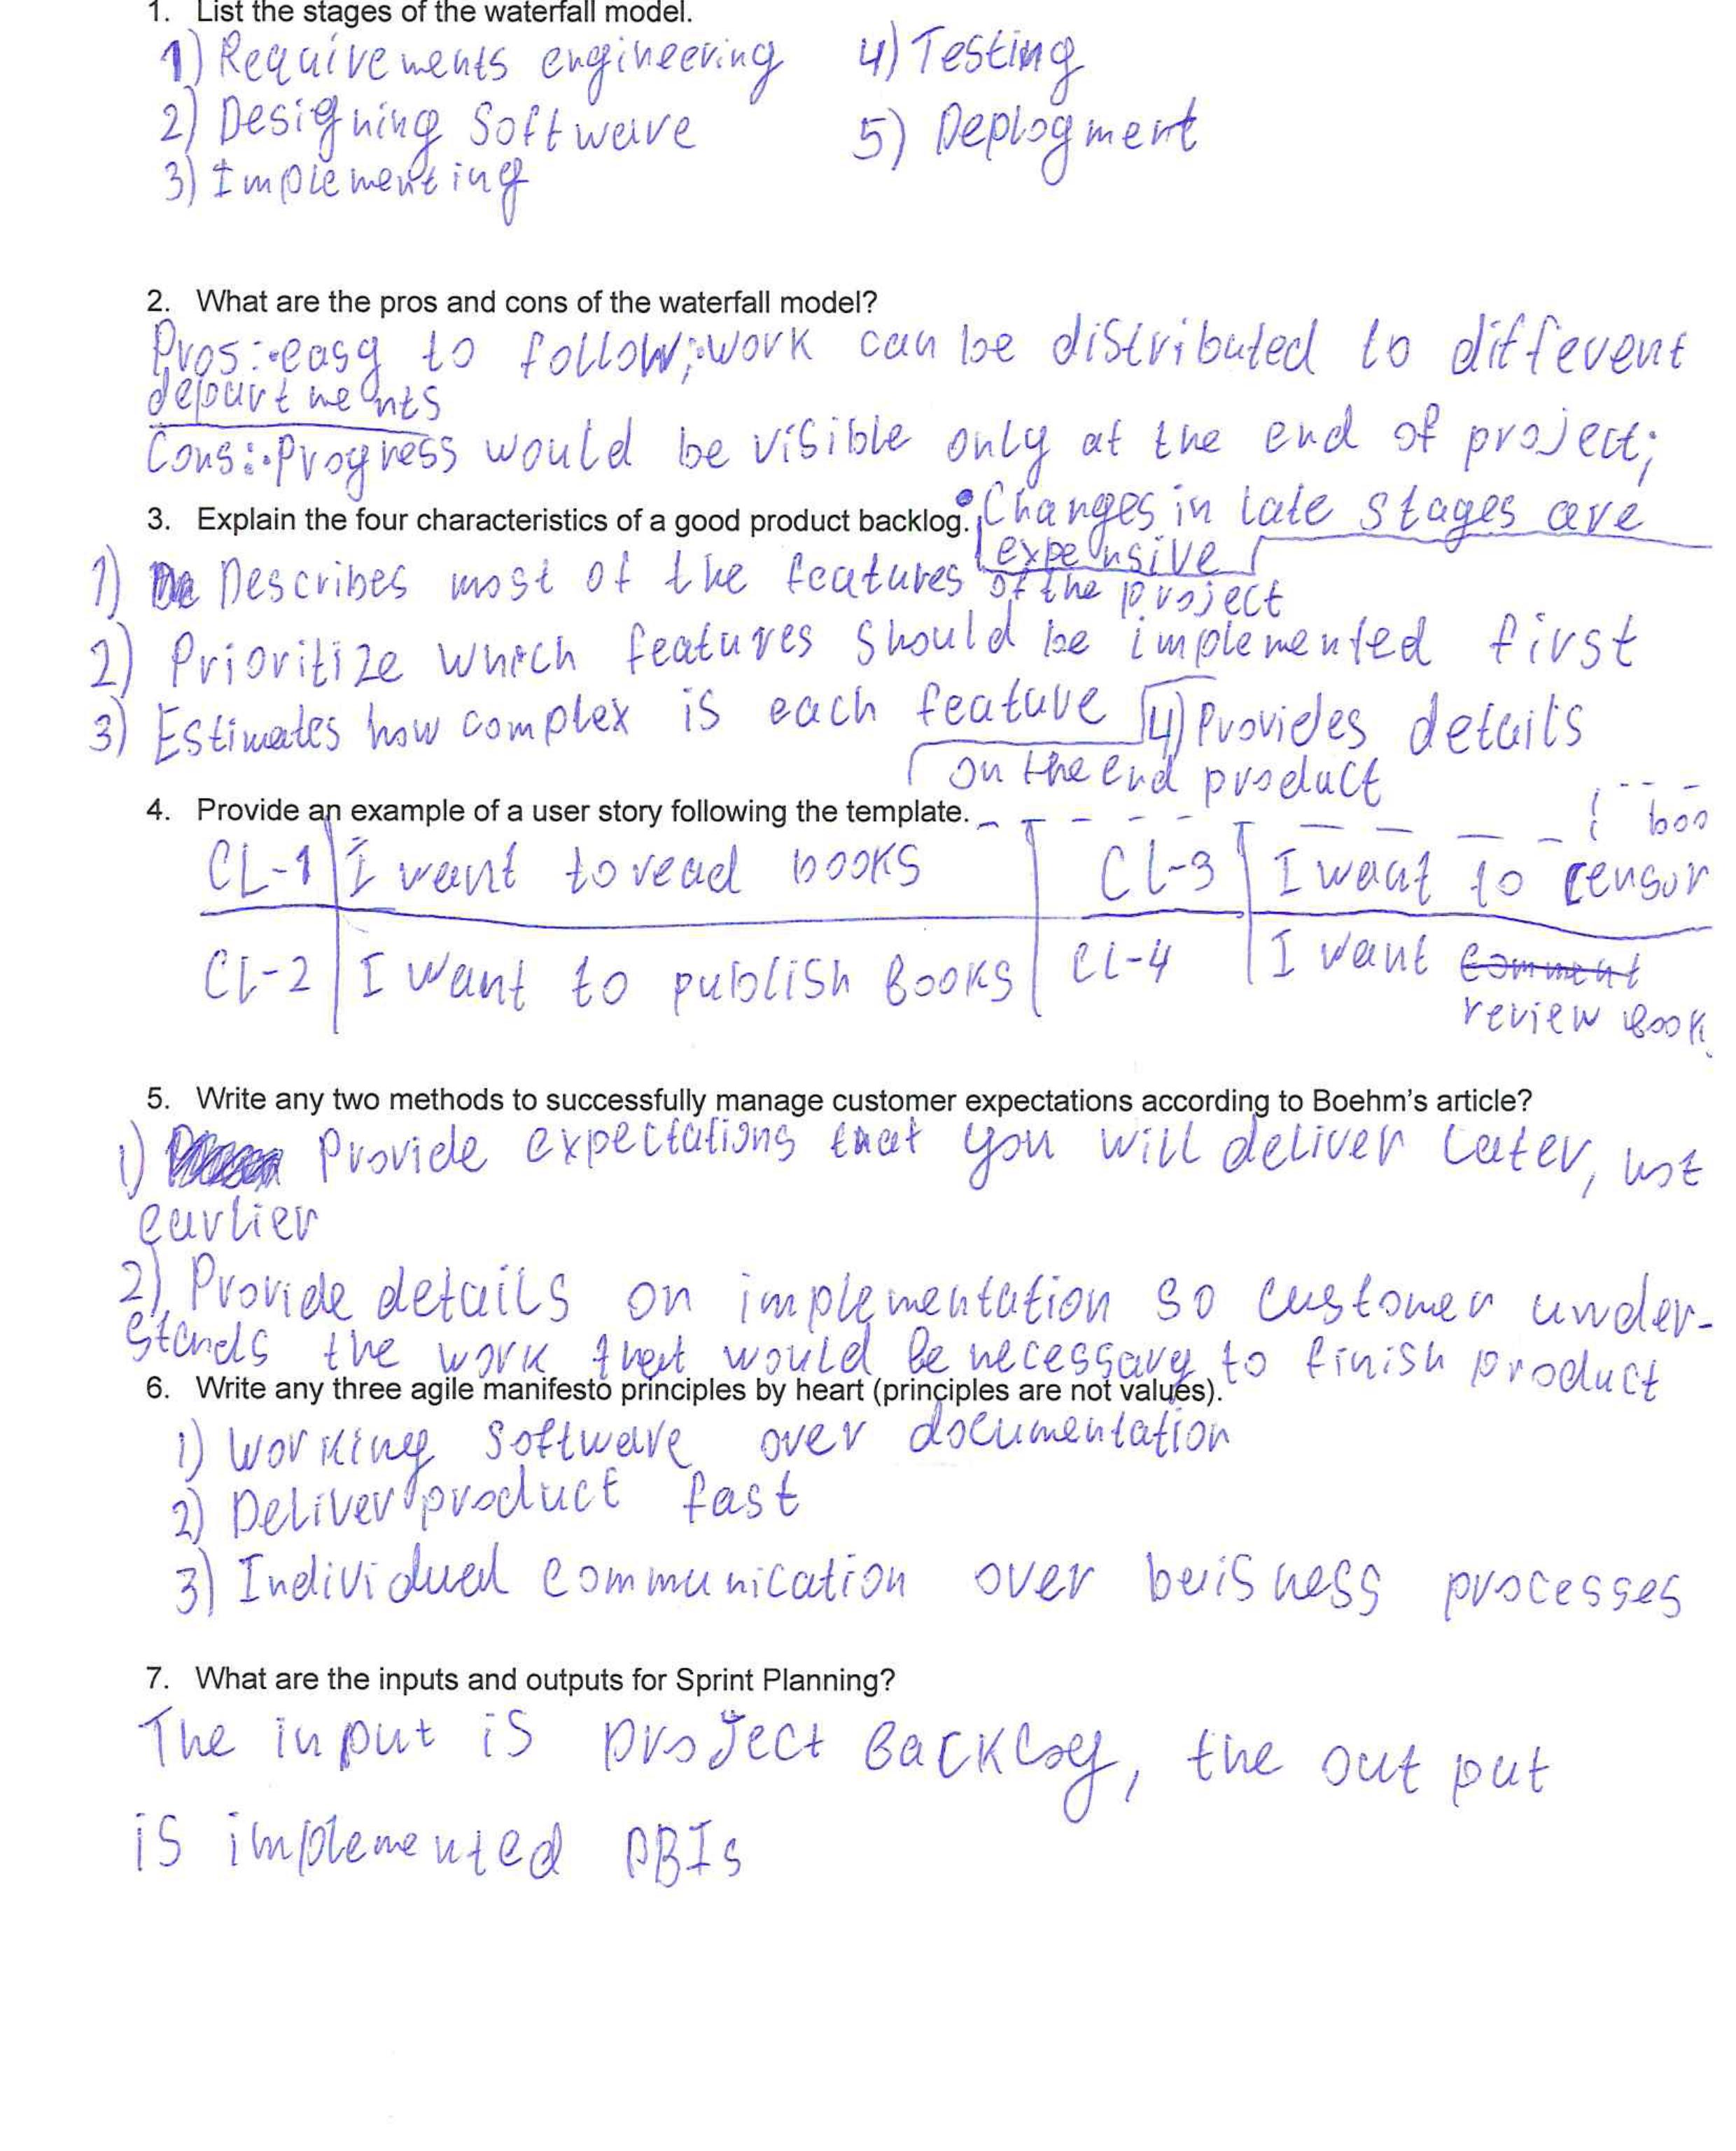 1. List the stages of the waterfall model.
1) Requirements engineering
2) Designing Software
3) Implementing
4) Testing
5) Deployment
2. What are the pros and cons of the waterfall model?
Pros:•easy to follow;•work can be distributed to different
departments
Cons:•Progress would be visible only at the end of project;
•Changes in late stages are
expensive
3. Explain the four characteristics of a good product backlog.
1) Describes most of the features of the project
2) Prioritize which features should be implemented first
3) Estimates how complex is each feature
4) Provides details
on the end product
4. Provide an example of a user story following the template.
CL-1 I want to read books
CL-2 I want to publish books
CL-3 I want to censor
boo
CL-4 I want comment
review book
5. Write any two methods to successfully manage customer expectations according to Boehm's article?
1) Provide expectations that you will deliver later, not
earlier
2) Provide details on implementation so customer under-
stands the work that would be necessary to finish product
6. Write any three agile manifesto principles by heart (principles are not values).
1) Working software over documentation
2) Deliver product fast
3) Individual communication over beisness processes
7. What are the inputs and outputs for Sprint Planning?
The input is project backlog, the output
is implemented PBIs